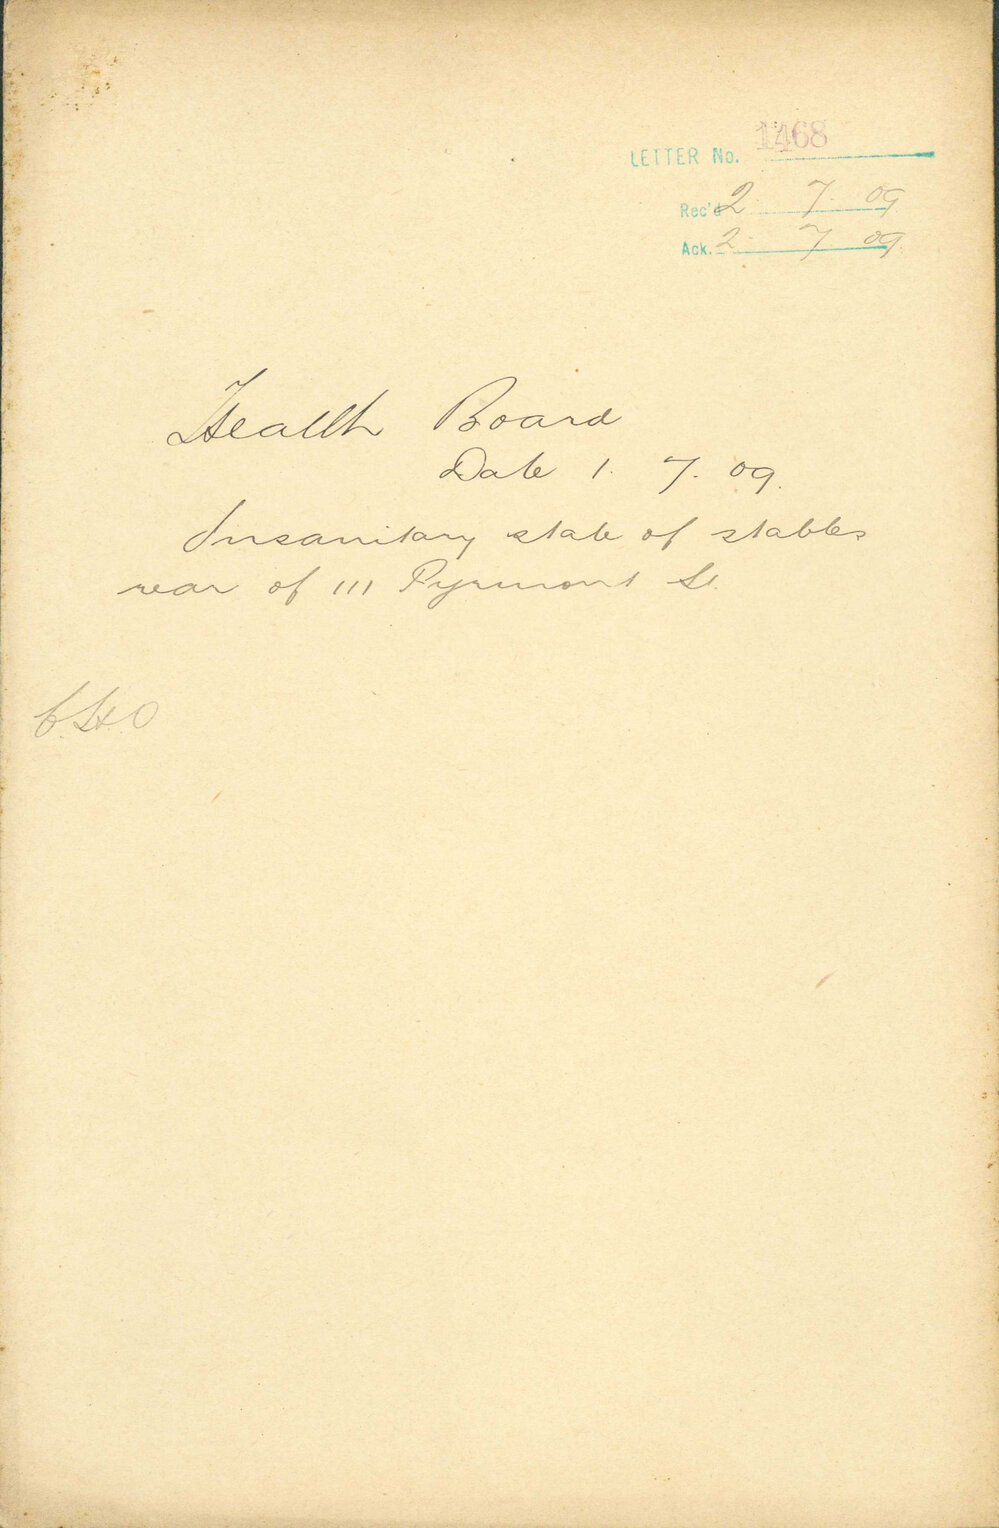 LETTER No. 1468
Rec'd 2. 7. 09
Ack. 2. 7. 09.
Health Board
Date 1. 7. 09.
Insanitary state of stables
rear of 111 Pyrmont St.
C.H.O